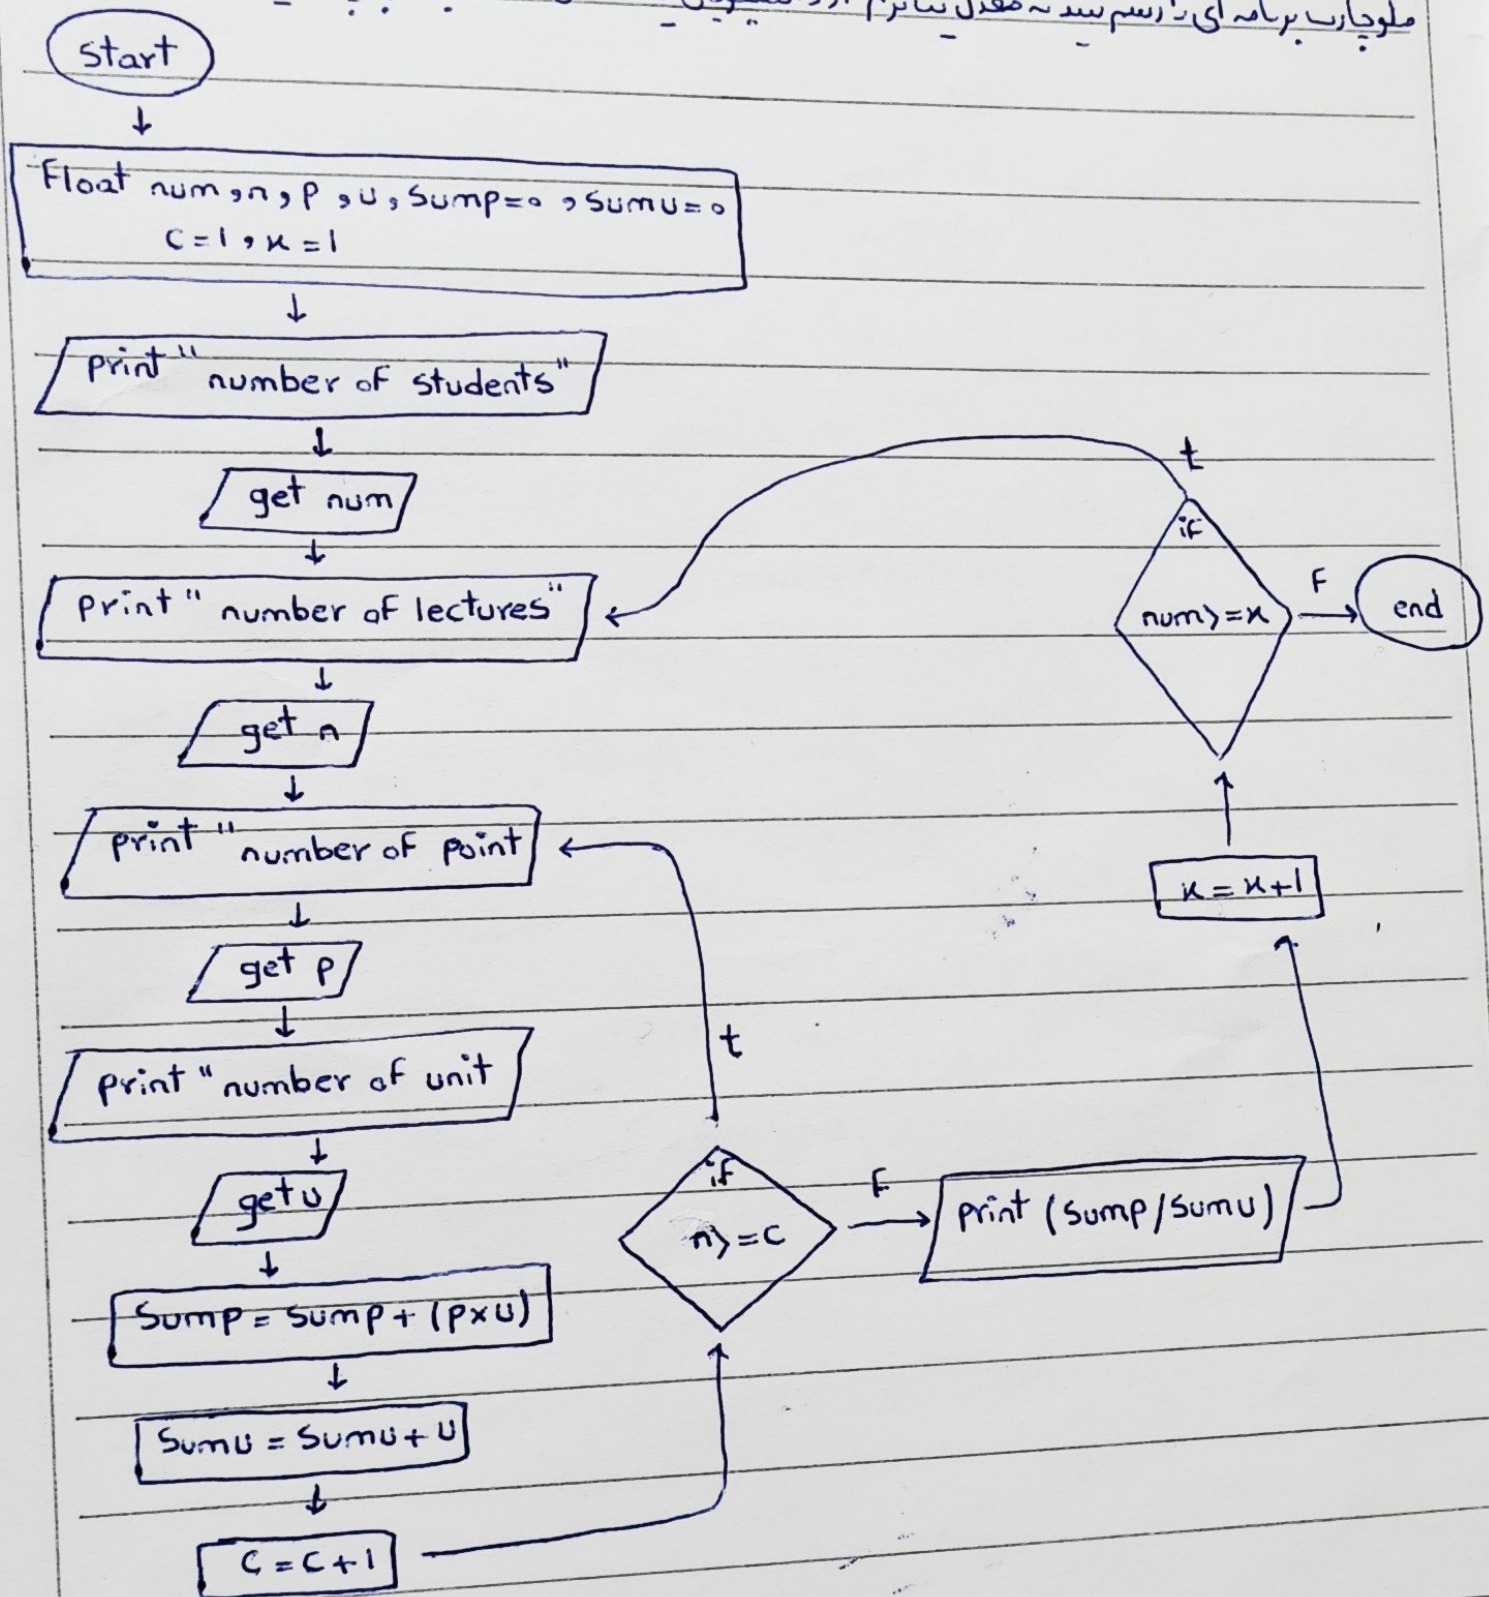 فلوچارت برنامه ای را رسم کنید که معدل
start
Float num,n,p,u,Sump=0,Sumu=0
C=1,x=1
print "number of students"
get num
print "number of lectures"
get n
print "number of point
get p
print "number of unit
get u
Sump=Sump+(p×u)
Sumu=Sumu+u
C=C+1
if
n>=C
t
F
print (Sump/Sumu)
x=x+1
if
num>=x
t
F
end